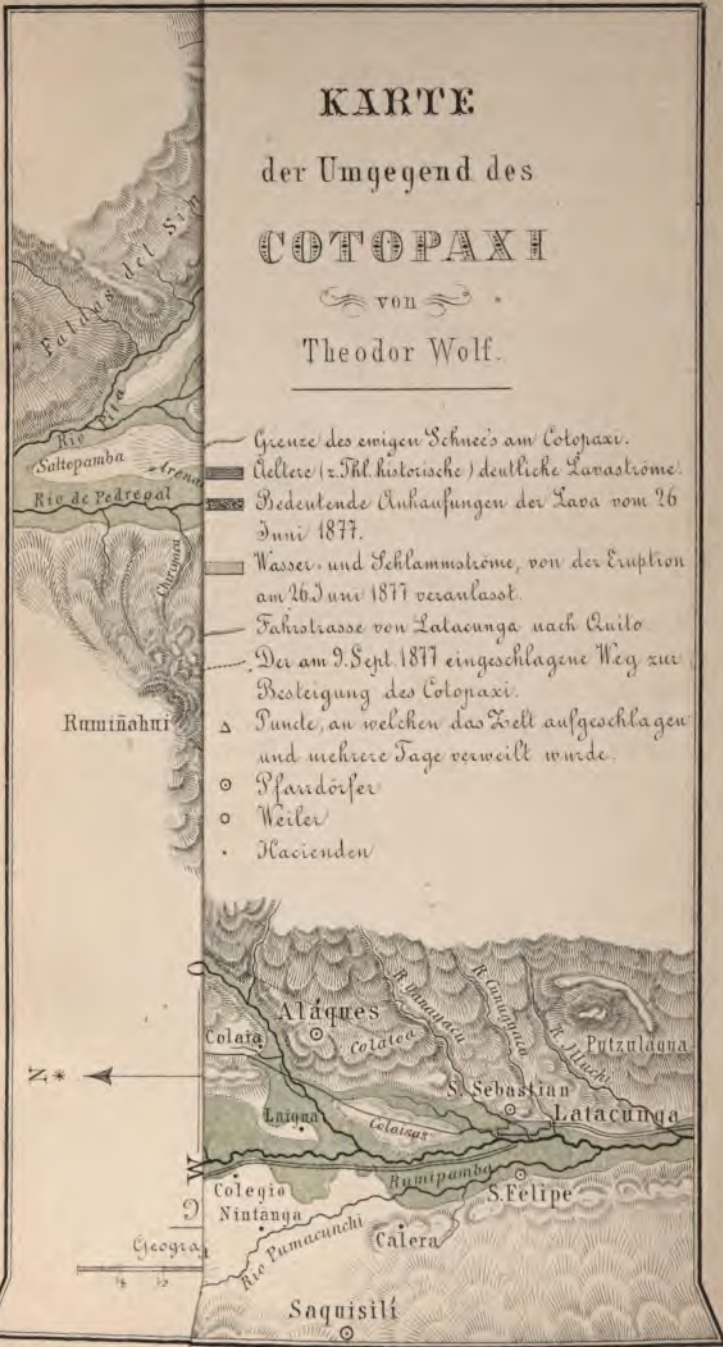 KARTE
der Umgegend des
COTOPAXI
von
Theodor Wolf.
Grenze des ewigen Schnee's am Cotopaxi.
Aeltere (z. Thl. historische) deutliche Lavaströme.
Bedeutende Anhaufungen der Lava vom 26
Juni 1877.
Wasser- und Schlammströme, von der Eruption
am 26 Juni 1877 veranlasst.
Fahrstrasse von Latacunga nach Quito
Der am 9. Sept. 1877 eingeschlagene Weg zur
Besteigung des Cotopaxi.
Puncte, an welchen das Zelt aufgeschlagen
und mehrere Tage verweilt wurde.
Pfarrdörfer
Weiler
Hacienden
Faldas del Sin
Rio Pita
Saltopamba
Arena
Rio de Pedregal
Rumiñahui
Aláques
Colaia
Colatoa
R. Yanayacu
R. Cunuyacu
R. Illuchi
Putzulagua
N
S. Sebastian
Latacunga
Laigua
Colaisas
W
Rumipamba
Colegio
S. Felipe
Nintanga
Rio Pumacunchi
Calera
Geogra
Saquisilí